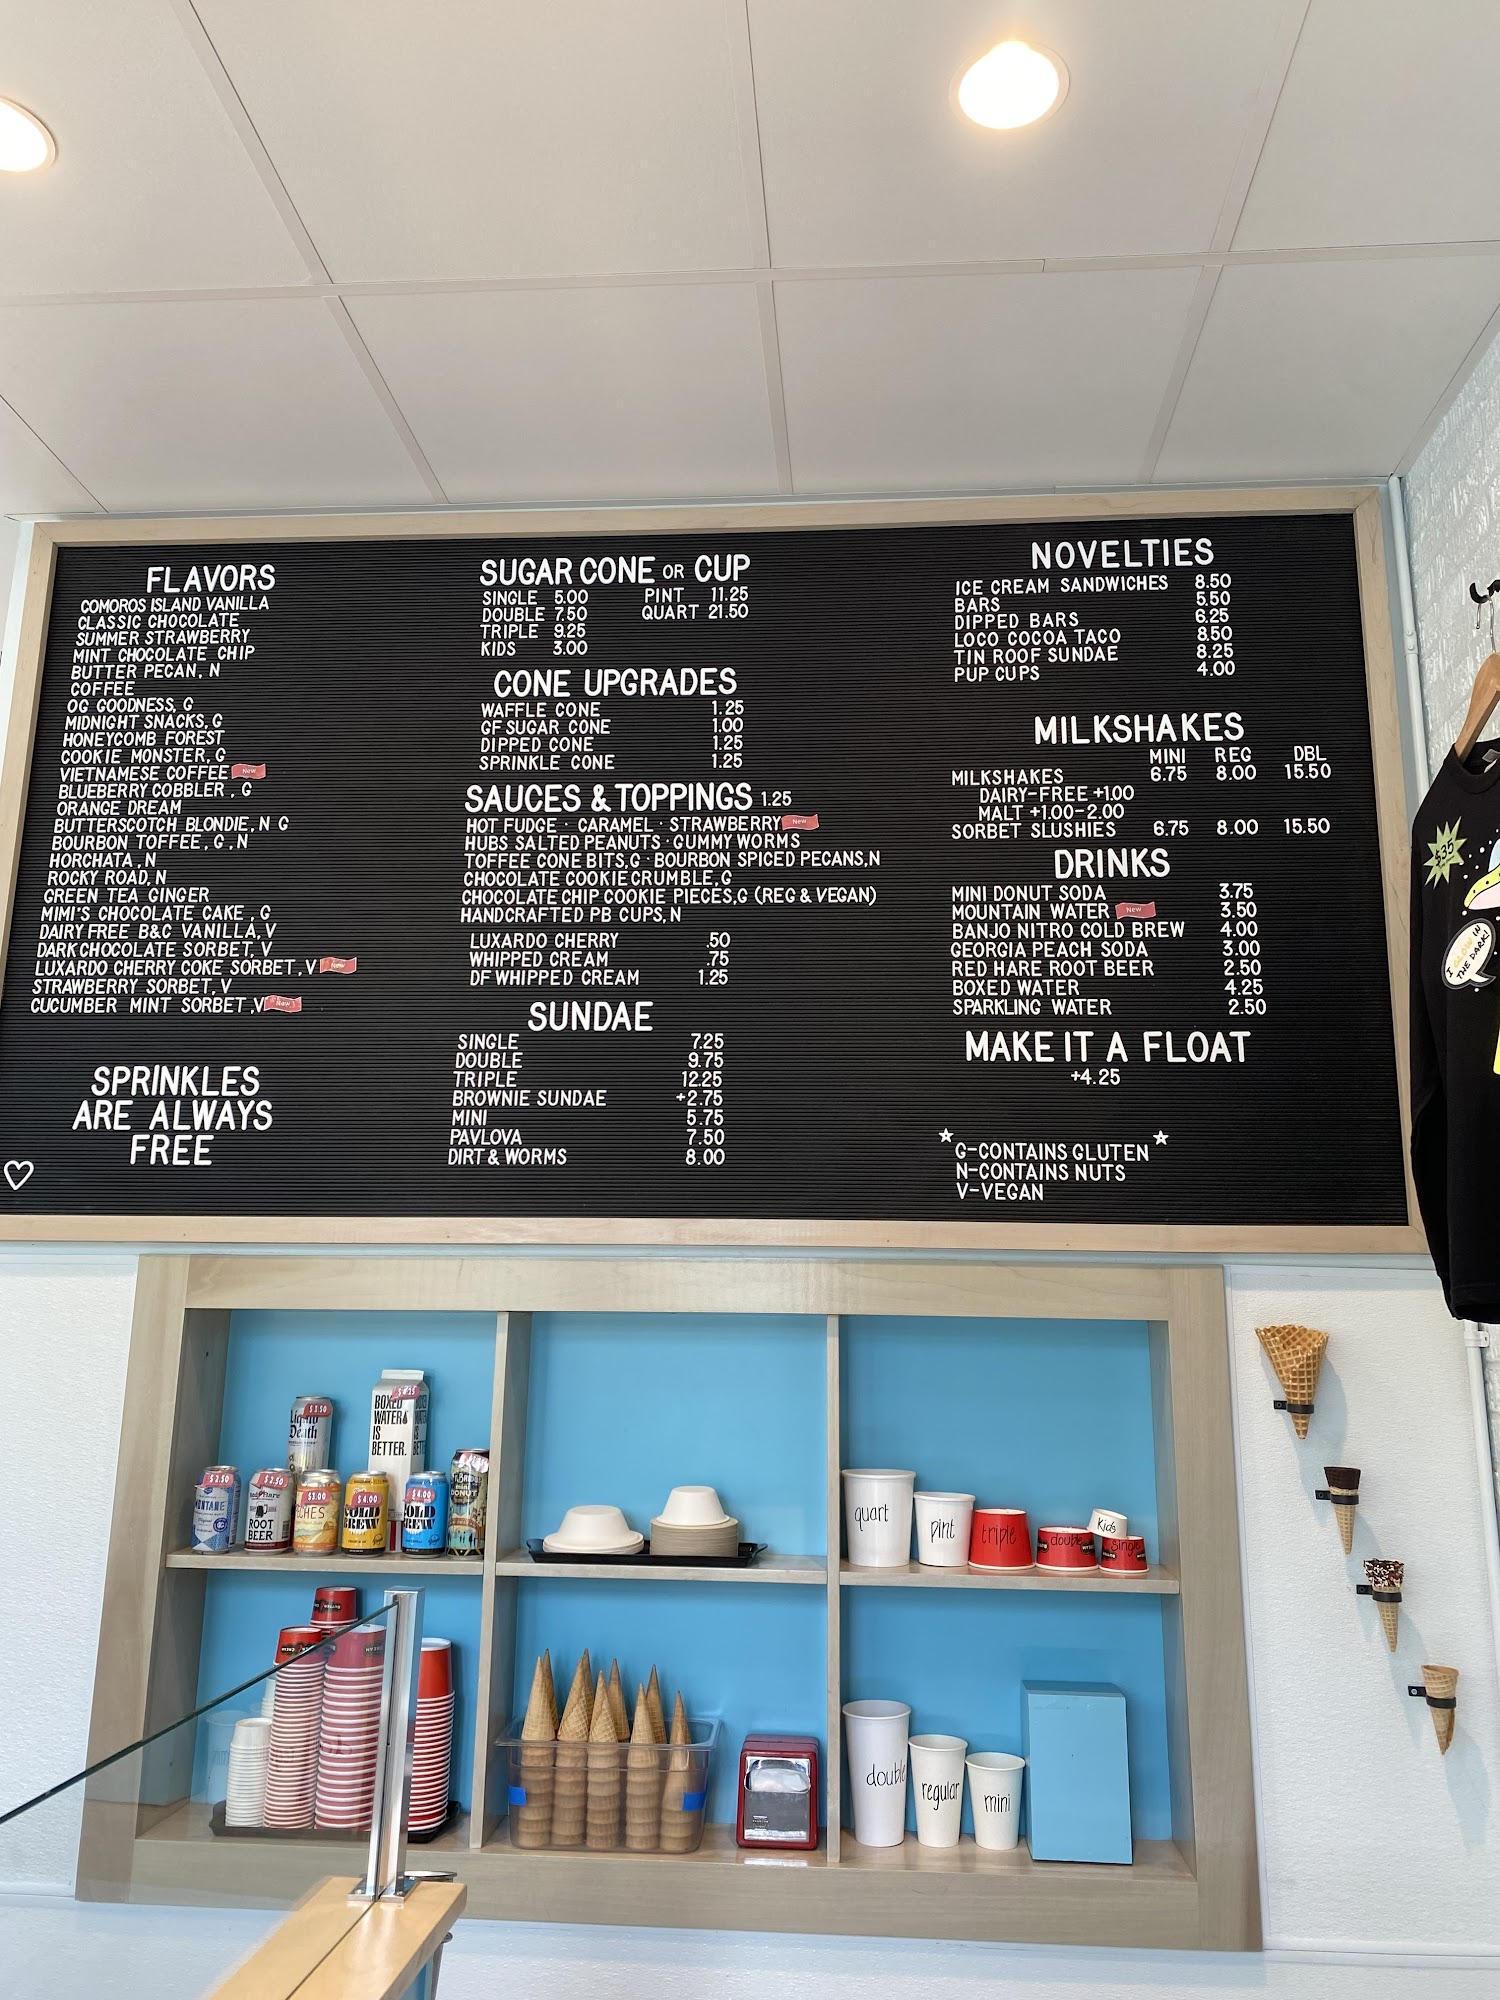 FLAVORS
COMOROS ISLAND VANILLA
CLASSIC CHOCOLATE
SUMMER STRAWBERRY
MINT CHOCOLATE CHIP
BUTTER PECAN, N
COFFEE
OG GOODNESS, G
MIDNIGHT SNACKS, G
HONEYCOMB FOREST
COOKIE MONSTER, G
VIETNAMESE COFFEE New
BLUEBERRY COBBLER, G
ORANGE DREAM
BUTTERSCOTCH BLONDIE, N G
BOURBON TOFFEE, G, N
HORCHATA, N
ROCKY ROAD, N
GREEN TEA GINGER
MIMI'S CHOCOLATE CAKE, G
DAIRY FREE B&C VANILLA, V
DARK CHOCOLATE SORBET, V
LUXARDO CHERRY COKE SORBET, V New
STRAWBERRY SORBET, V
CUCUMBER MINT SORBET, V New
SPRINKLES
ARE ALWAYS
FREE
SUGAR CONE OR CUP
SINGLE 5.00 PINT 11.25
DOUBLE 7.50 QUART 21.50
TRIPLE 9.25
KIDS 3.00
CONE UPGRADES
WAFFLE CONE 1.25
GF SUGAR CONE 1.00
DIPPED CONE 1.25
SPRINKLE CONE 1.25
SAUCES & TOPPINGS 1.25
HOT FUDGE · CARAMEL · STRAWBERRY New
HUBS SALTED PEANUTS · GUMMY WORMS
TOFFEE CONE BITS, G · BOURBON SPICED PECANS, N
CHOCOLATE COOKIE CRUMBLE, G
CHOCOLATE CHIP COOKIE PIECES, G (REG & VEGAN)
HANDCRAFTED PB CUPS, N
LUXARDO CHERRY .50
WHIPPED CREAM .75
DF WHIPPED CREAM 1.25
SUNDAE
SINGLE 7.25
DOUBLE 9.75
TRIPLE 12.25
BROWNIE SUNDAE +2.75
MINI 5.75
PAVLOVA 7.50
DIRT & WORMS 8.00
NOVELTIES
ICE CREAM SANDWICHES 8.50
BARS 5.50
DIPPED BARS 6.25
LOCO COCOA TACO 8.50
TIN ROOF SUNDAE 8.25
PUP CUPS 4.00
MILKSHAKES
MINI REG DBL
MILKSHAKES 6.75 8.00 15.50
DAIRY-FREE +1.00
MALT +1.00-2.00
SORBET SLUSHIES 6.75 8.00 15.50
DRINKS
MINI DONUT SODA 3.75
MOUNTAIN WATER New 3.50
BANJO NITRO COLD BREW 4.00
GEORGIA PEACH SODA 3.00
RED HARE ROOT BEER 2.50
BOXED WATER 4.25
SPARKLING WATER 2.50
MAKE IT A FLOAT
+4.25
G-CONTAINS GLUTEN
N-CONTAINS NUTS
V-VEGAN
$35
I GLOW IN
THE DARK!
$3.50
Liquid
Death
BOXED
WATER
IS
BETTER.
$2.50
$2.50
ROOT
BEER
$3.00
$4.00
COLD
BREW
$4.00
COLD
BREW
mini
DONUT
quart
pint
triple
double
Kids
single
double
regular
mini